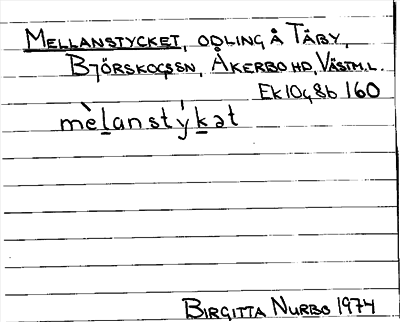 MELLANSTYCKET, ODLING Å TÄBY,
BJÖRSKOGSSN, ÅKERBO HD, VÄSTM.L.
Ek 10g8b 160
mèl̲anstýk̲ət
BIRGITTA NURBO 1974